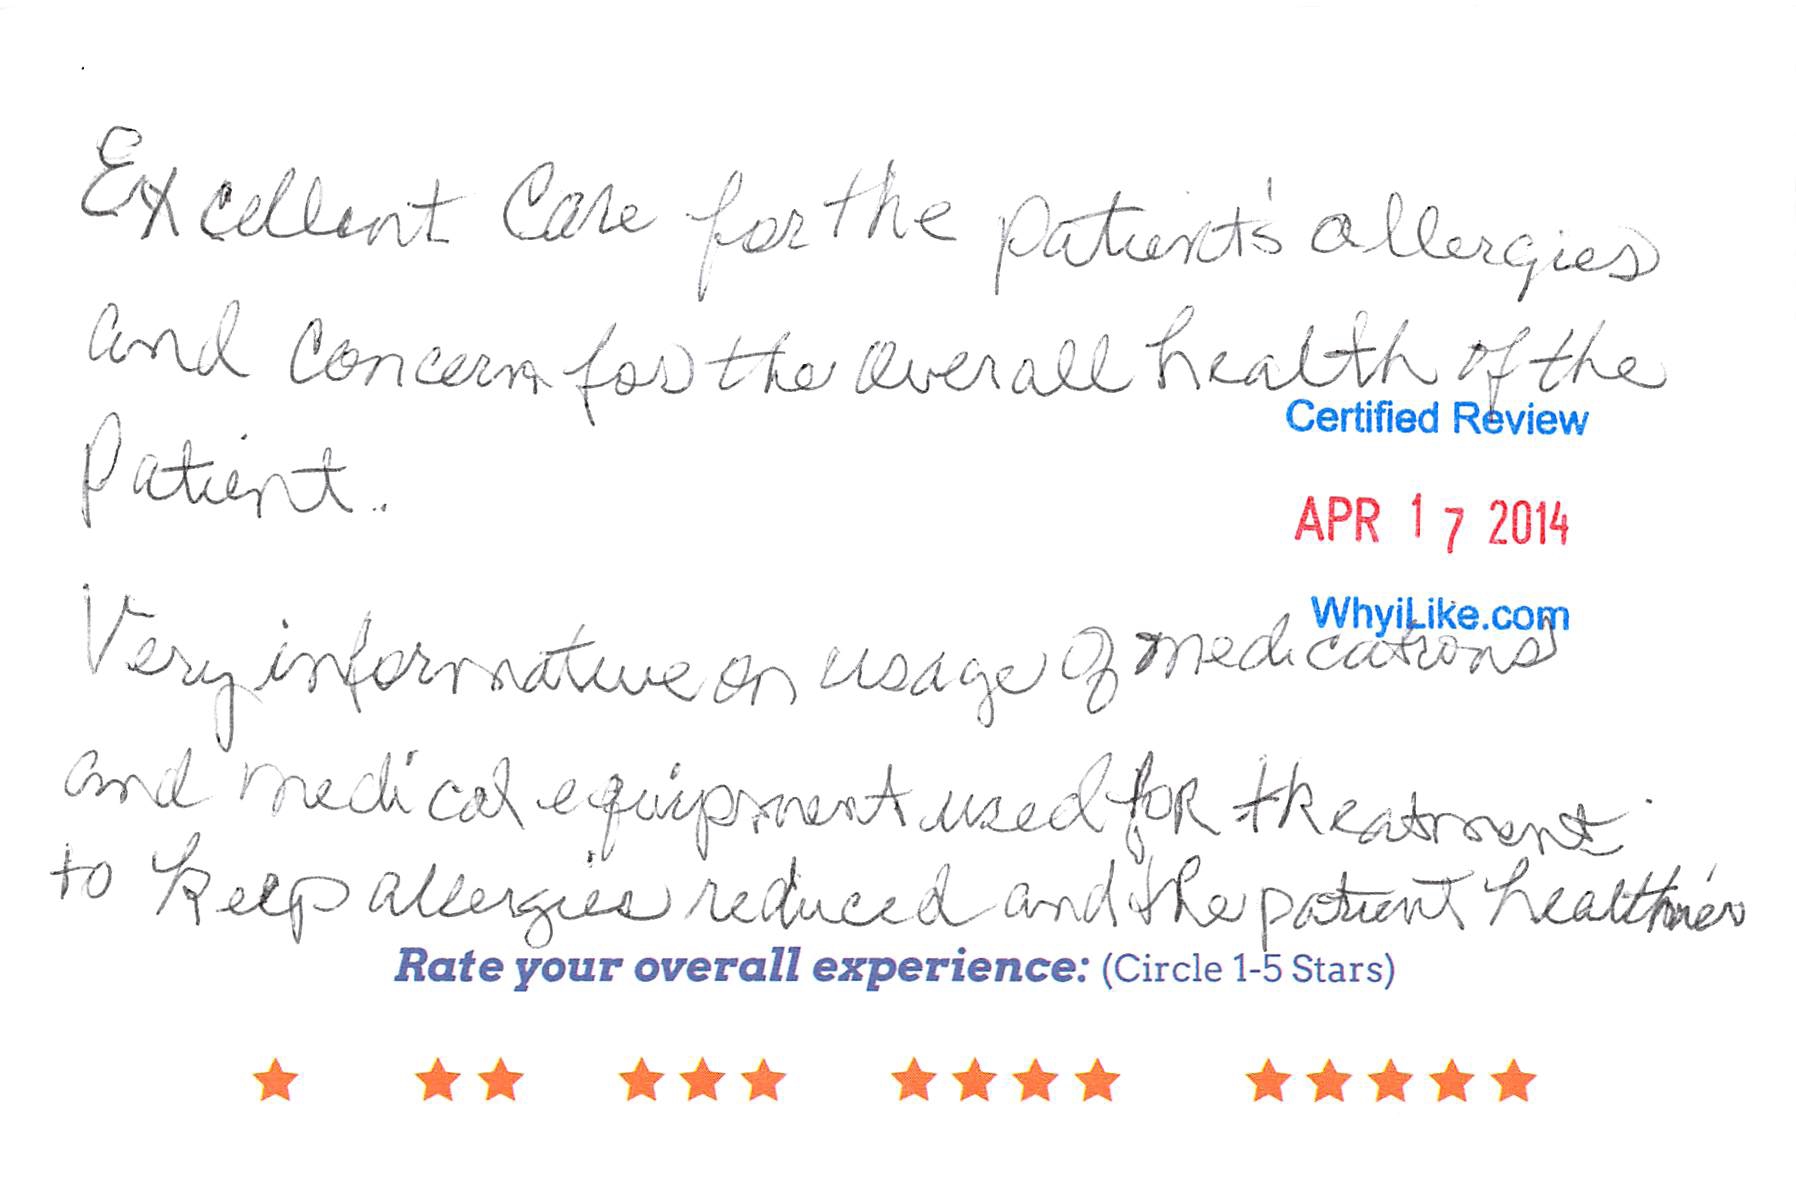 Excellent Care for the patient's allergies
and concern for the overall health of the
Certified Review
Patient.
APR 17 2014
WhyiLike.com
Very informative on usage of medications
and medical equipment used for treatment
to keep allergies reduced and the patient healthier
Rate your overall experience: (Circle 1-5 Stars)